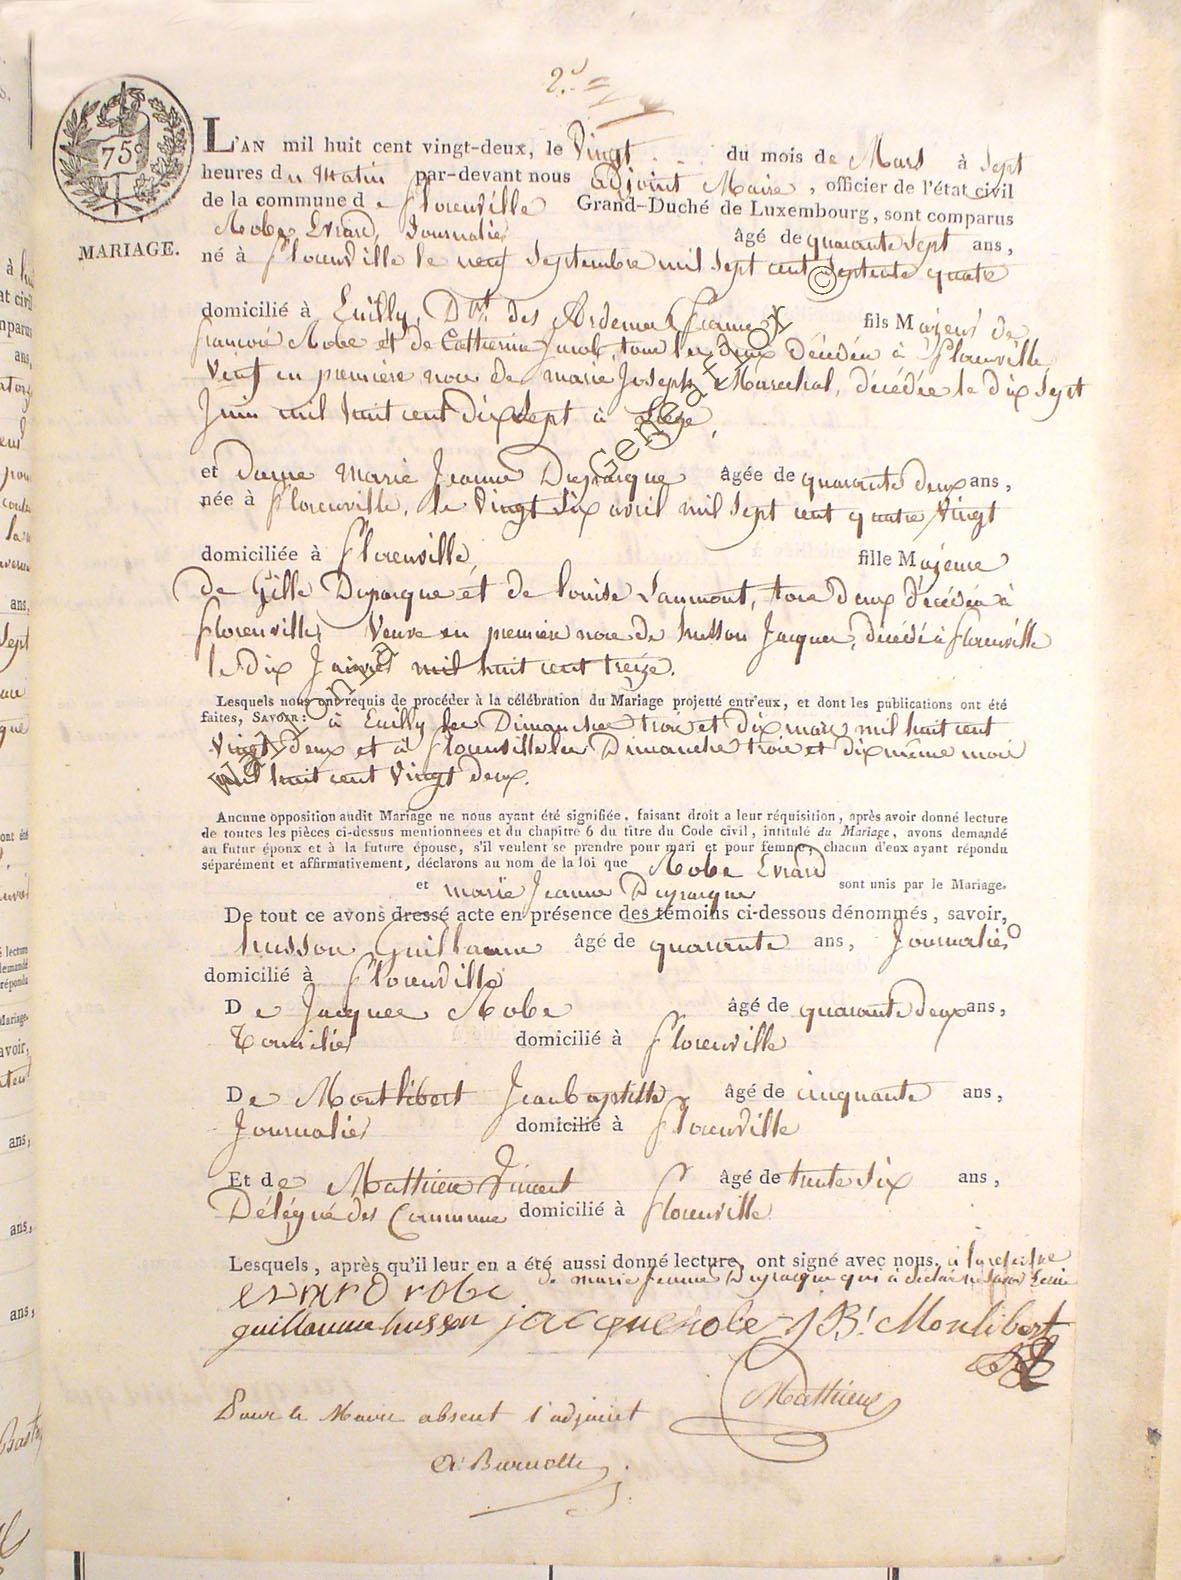 2.d
75c
MARIAGE.
L'AN mil huit cent vingt-deux, le Vingt du mois de Mars à Sept
heures du Matin par-devant nous adjoint Maire, officier de l'état civil
de la commune de Florenville Grand-Duché de Luxembourg, sont comparus
Robe Evrard, Journalier âgé de quarante Sept ans,
né à Florenville le neuf Septembre mil Sept cent Septente quatre
domicilié à Euilly, Dt. des Ardennes france fils Majeur de
francois Robe et de Catherine Jacob, tous les deux décédés à Florenville,
Veuf en première noce de marie Joseph Maréchal, décédée le dix Sept
Juin mil huit cent dix Sept à Liège,
et dame Marie Jeanne Duparque âgée de quarante deux ans,
née à Florenville, le Vingt Six avril mil Sept cent quatre Vingt
domiciliée à Florenville, fille Majeure
de Gille Duparque et de Louise Laumont, tous deux décédés à
florenville, Veuve en première noce de husson Jacques, décédé à florenville
le dix Janvier mil huit cent treize.
Lesquels nous ont requis de procéder à la célébration du Mariage projetté entr'eux, et dont les publications ont été
faites, SAVOIR: à Euilly les Dimanches trois et dix mars mil huit cent
Vingt deux et à Florenville les Dimanches trois et dix même mois
mil huit cent Vingt deux.
Aucune opposition audit Mariage ne nous ayant été signifiée, faisant droit a leur réquisition, après avoir donné lecture
de toutes les pièces ci-dessus mentionnées et du chapitre 6 du titre du Code civil, intitulé du Mariage, avons demandé
au futur époux et à la future épouse, s'il veulent se prendre pour mari et pour femme; chacun d'eux ayant répondu
séparément et affirmativement, déclarons au nom de la loi que Robe Evrard
et marie Jeanne Duparque sont unis par le Mariage.
De tout ce avons dressé acte en présence des témoins ci-dessous dénommés, savoir,
husson Guillaume âgé de quarante ans, Journalier
domicilié à Florenville
De Jacques Robe âgé de quarante Deux ans,
domicilié à florenville
De Montlibert Jean baptiste âgé de cinquante ans,
Journalier domicilié à florenville
Et de Mathieu Vincent âgé de trente Six ans,
Délégué des Commune domicilié à florenville
Lesquels, après qu'il leur en a été aussi donné lecture, ont signé avec nous, à la réserve
de marie Jeanne Duparque qui à déclaré ne Savoir Ecrire
evrard robe
guillaume husson jacque robe J Bt Monlibert
Mathieu
Pour le Maire absent l'adjoint